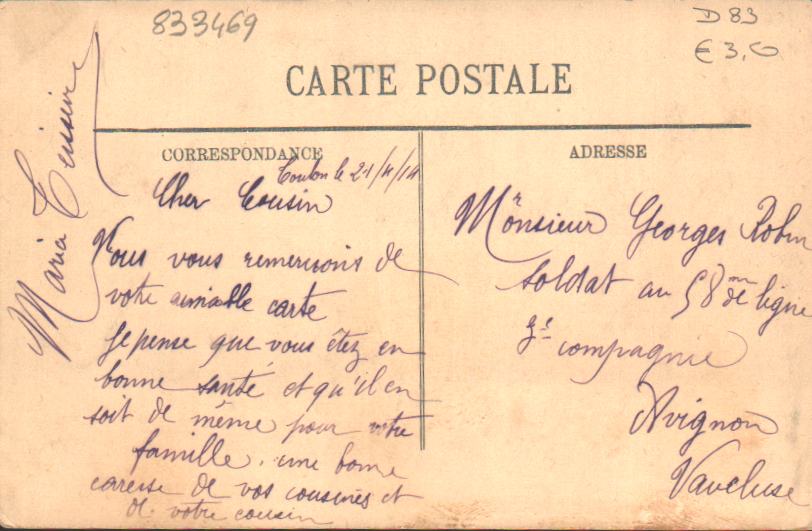 833469
D 83
€ 3,0
CARTE POSTALE
CORRESPONDANCE
ADRESSE
Toulon le 21/4/14
Cher Cousin
Nous vous remercions de
votre aimable carte
je pense que vous êtez en
bonne santé et qu'il en
soit de même pour votre
famille. une bonne
caresse de vos cousines et
de votre cousin
Maria Teisseire
Monsieur Georges Robin
soldat au 58me de ligne
compagnie
Avignon
Vaucluse